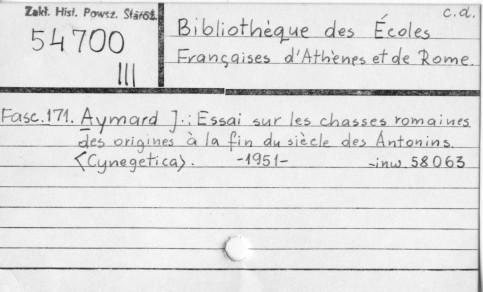 Zakł. Hist. Powsz. Staroż.
54700
III
c.d.
Bibliothèque des Écoles
Françaises d'Athènes et de Rome.
Fasc.171. Aymard J.: Essai sur les chasses romaines
des origines à la fin du siècle des Antonins.
<Cynegetica>. -1951- -inw. 58063